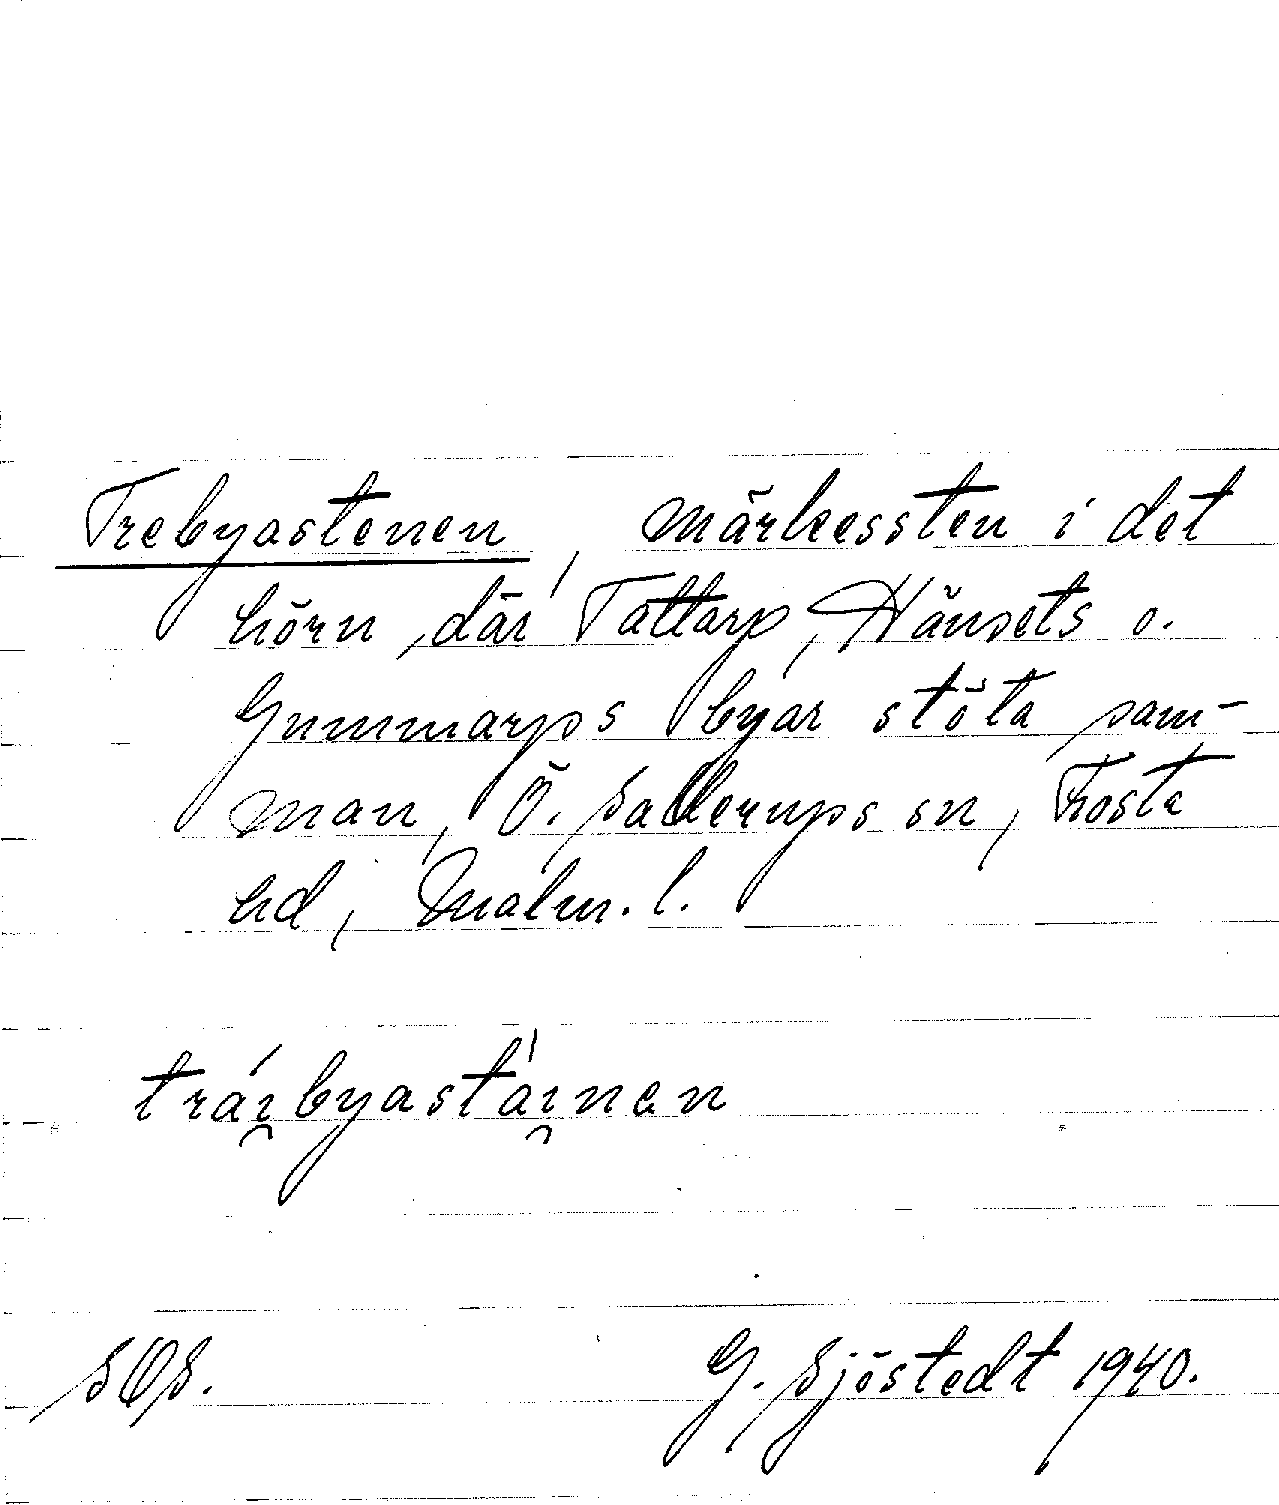 Trebyastenen, märkessten i det
hörn, där Tattarp, Hänsets o.
Gummarps byar stöta sam-
man, Ö. Sallerups sn, Frosta
hd, Malm. l.
tráı̯byastáı̯nen
SOS.
G. Sjöstedt 1940.